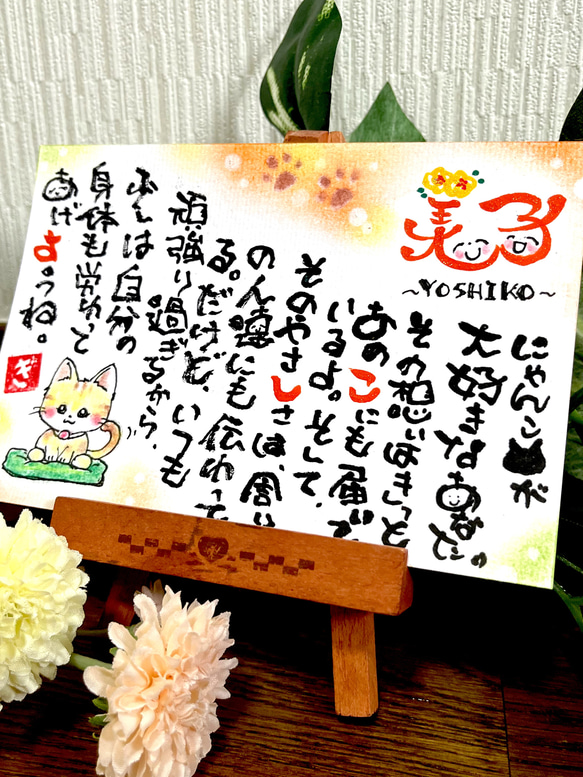 美子
~YOSHIKO~
にゃんこが
大好きなあなた。
その想いはきっと
あのこにも届いて
いるよ。そして、
そのやさしさは、周り
の人達にも伝わって
る。だけど、いつも
頑張り過ぎるから、
少しは自分の
身体も労わって
あげようね。